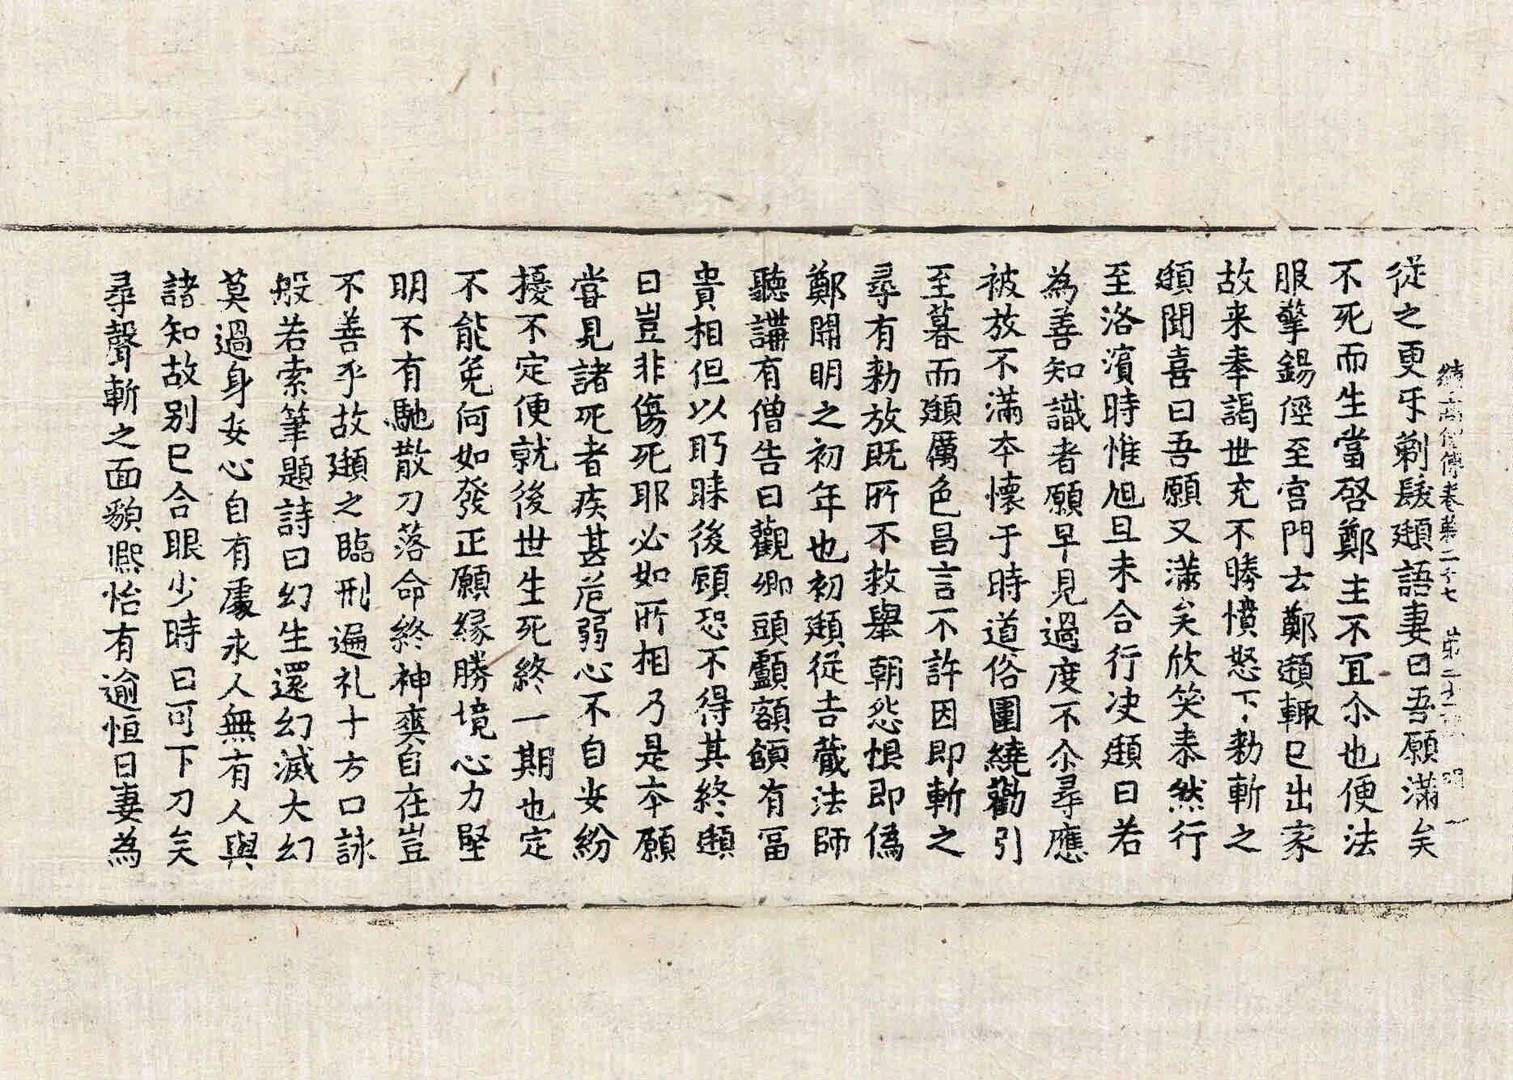 從之更㸦剃髮頲語妻曰吾願滿矣
續高僧傳卷第二十七
不死而生當啓鄭主不宜尒也便法
服擎錫徑至宮門云鄭頲輙已出家
故来奉謁世充不勝憤怒下勑斬之
頲聞喜曰吾願又滿矣欣笑泰然行
至洛濱時惟旭旦未合行决頲曰若
為善知識者願早見過度不尒尋應
被放不滿本懷于時道俗圍繞勸引
至暮而頲厲色昌言不許因即斬之
尋有勑放既所不救舉朝怨恨即偽
鄭開明之初年也初頲從吉藏法師
聽講有僧告曰觀卿頭顱額頟有富
貴相但以眄睞後顧恐不得其終頲
曰豈非傷死耶必如所相乃是本願
嘗見諸死者疾甚危弱心不自安紛
擾不定便就後世生死終一期也定
不能免何如發正願緣勝境心力堅
明不有馳散刀落命終神爽自在豈
不善乎故頲之臨刑遍礼十方口詠
般若索筆題詩曰幻生還幻滅大幻
莫過身安心自有處求人無有人與
諸知故别已合眼少時曰可下刀矣
尋聲斬之面貌熈怡有逾恒日妻為